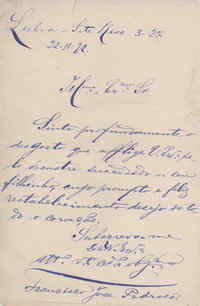 Lisboa - Sete 3-2º
22-11-92
Illmo. Exmo. Sr.
Sinto profundamente o
desgosto que afflige V. Exa. pe
lo desastre succedido a seu
filhinho, cujo prompto e feliz
restabelecimento desejo de to
do o coração.
Subscrevo-me
De V. Exa.
Francisco José